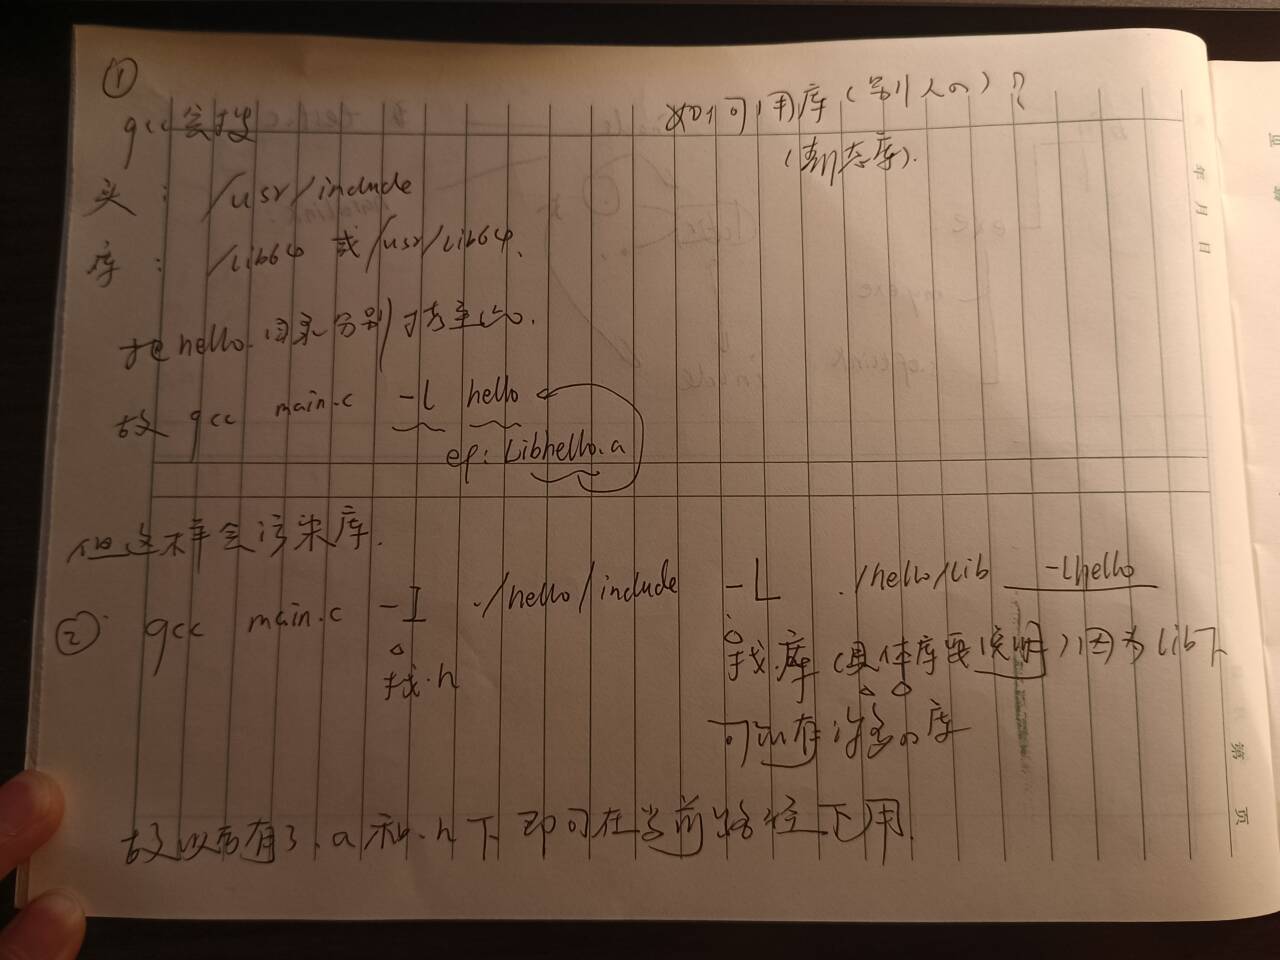 ①
gcc会找
如何用库(别人的)?
(静态库).
头: /usr/include
库: /Lib64 或 /usr/Lib64.
把hello.目录分别拷至此.
故 gcc main.c -l hello
ep: Libhello.a
但这样会污染库.
② gcc main.c -I ./hello/include -L ./hello/Lib -lhello
找.h
找.库(具体库要说明)因为Lib下
可以有许多的库
故以后有了.a和.h下即可在当前路径下用.